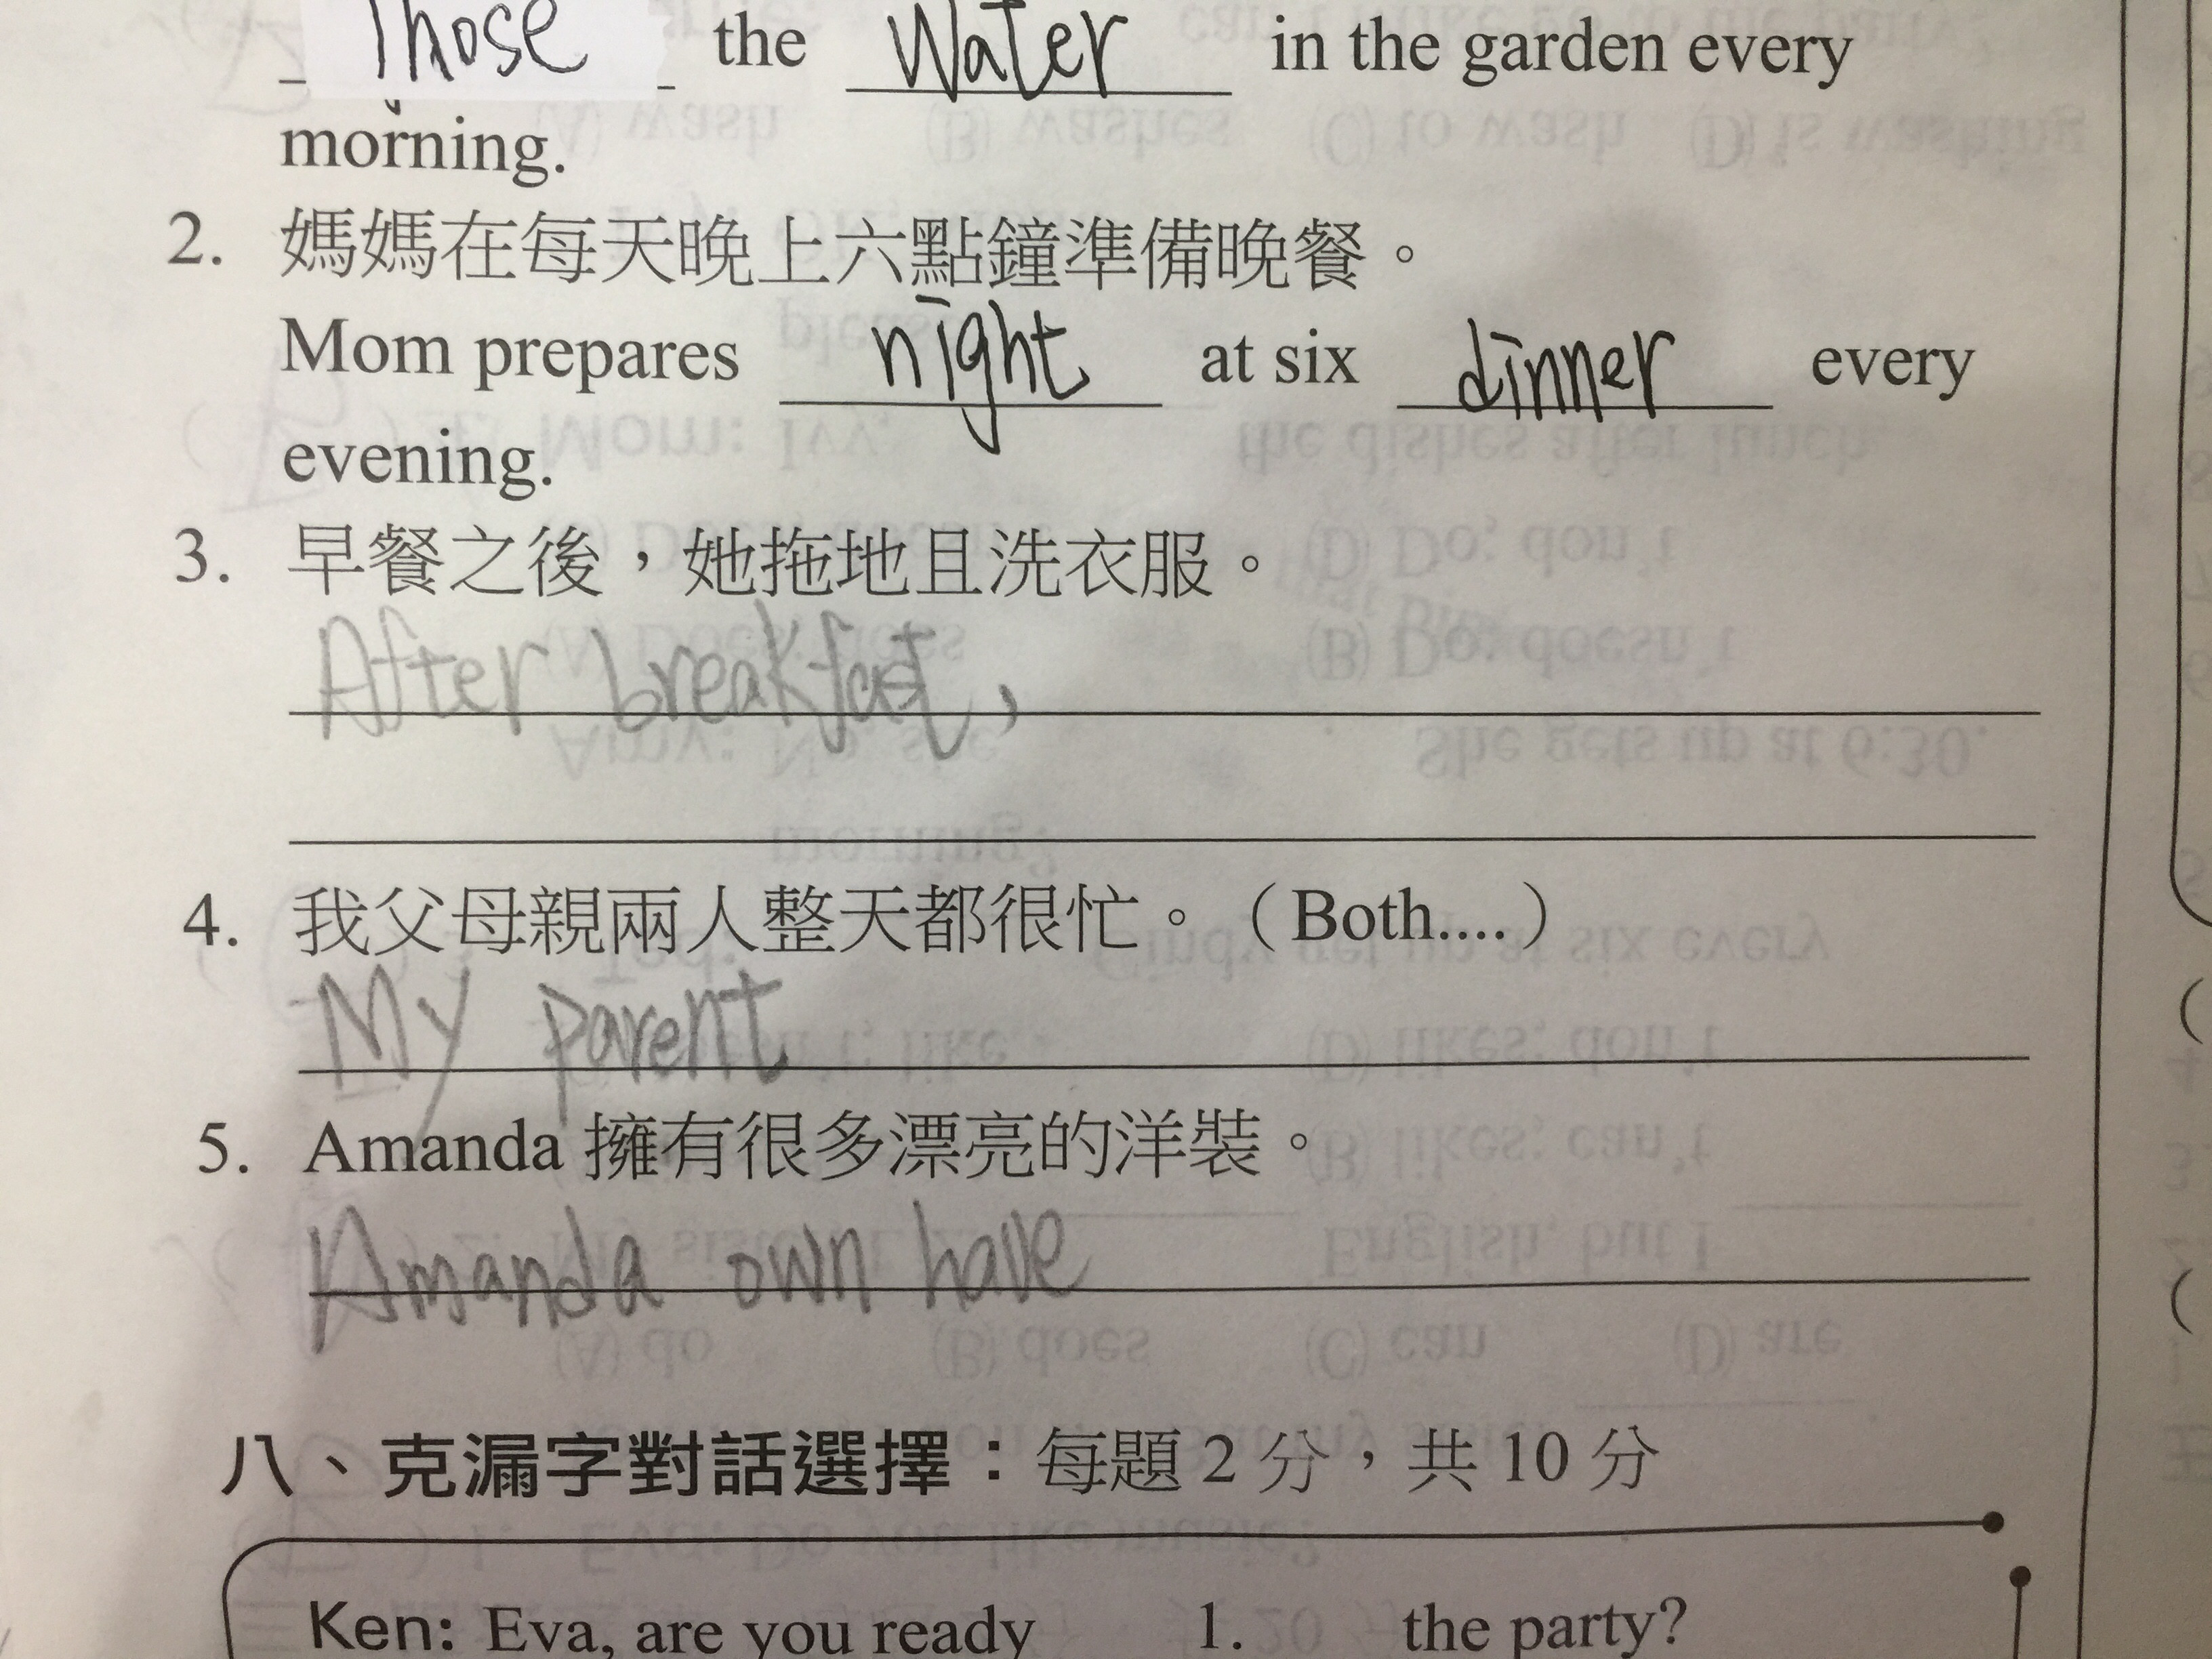 Those the Water in the garden every
morning.
2. 媽媽在每天晚上六點鐘準備晚餐。
Mom prepares night at six dinner every
evening.
3. 早餐之後，她拖地且洗衣服。
After breakfast,
4. 我父母親兩人整天都很忙。（Both....）
My parent
5. Amanda 擁有很多漂亮的洋裝。
Amanda own have
八、克漏字對話選擇：每題 2 分，共 10 分
Ken: Eva, are you ready 1. the party?